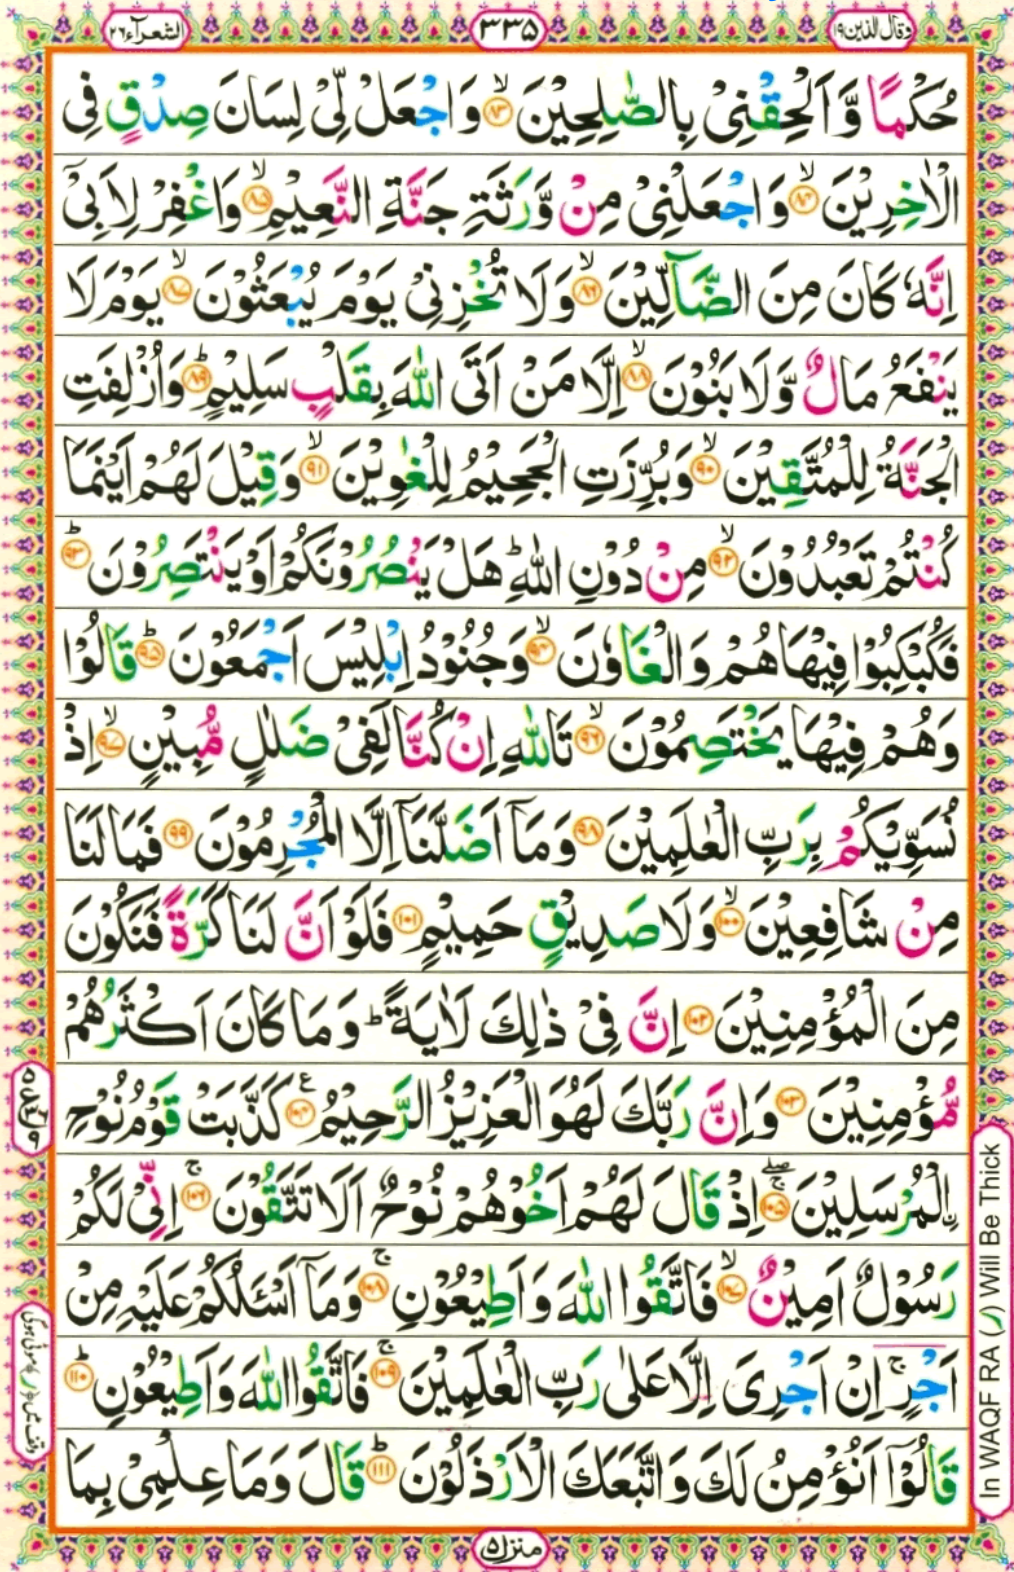 وقال الذین ۱۹
۳۳۵
الشعرآء ۲۶
حُكْمًا وَّ اَلْحِقْنِیْ بِالصّٰلِحِیْنَ ۙ﴿۸۳﴾ وَ اجْعَلْ لِّیْ لِسَانَ صِدْقٍ فِی
الْاٰخِرِیْنَ ۙ﴿۸۴﴾ وَ اجْعَلْنِیْ مِنْ وَّرَثَةِ جَنَّةِ النَّعِیْمِ ۙ﴿۸۵﴾ وَ اغْفِرْ لِاَبِیْۤ
اِنَّهٗ كَانَ مِنَ الضَّآلِّیْنَ ۙ﴿۸۶﴾ وَ لَا تُخْزِنِیْ یَوْمَ یُبْعَثُوْنَ ۙ﴿۸۷﴾ یَوْمَ لَا
یَنْفَعُ مَالٌ وَّ لَا بَنُوْنَ ۙ﴿۸۸﴾ اِلَّا مَنْ اَتَی اللّٰهَ بِقَلْبٍ سَلِیْمٍ ؕ﴿۸۹﴾ وَ اُزْلِفَتِ
الْجَنَّةُ لِلْمُتَّقِیْنَ ۙ﴿۹۰﴾ وَ بُرِّزَتِ الْجَحِیْمُ لِلْغٰوِیْنَ ۙ﴿۹۱﴾ وَ قِیْلَ لَهُمْ اَیْنَمَا
كُنْتُمْ تَعْبُدُوْنَ ۙ﴿۹۲﴾ مِنْ دُوْنِ اللّٰهِ ؕ هَلْ یَنْصُرُوْنَكُمْ اَوْ یَنْتَصِرُوْنَ ؕ﴿۹۳﴾
فَكُبْكِبُوْا فِیْهَا هُمْ وَ الْغَاوٗنَ ۙ﴿۹۴﴾ وَ جُنُوْدُ اِبْلِیْسَ اَجْمَعُوْنَ ؕ﴿۹۵﴾ قَالُوْا
وَ هُمْ فِیْهَا یَخْتَصِمُوْنَ ۙ﴿۹۶﴾ تَاللّٰهِ اِنْ كُنَّا لَفِیْ ضَلٰلٍ مُّبِیْنٍ ۙ﴿۹۷﴾ اِذْ
نُسَوِّیْكُمْ بِرَبِّ الْعٰلَمِیْنَ ﴿۹۸﴾ وَ مَاۤ اَضَلَّنَاۤ اِلَّا الْمُجْرِمُوْنَ ﴿۹۹﴾ فَمَا لَنَا
مِنْ شَافِعِیْنَ ۙ﴿۱۰۰﴾ وَ لَا صَدِیْقٍ حَمِیْمٍ ﴿۱۰۱﴾ فَلَوْ اَنَّ لَنَا كَرَّةً فَنَكُوْنَ
مِنَ الْمُؤْمِنِیْنَ ﴿۱۰۲﴾ اِنَّ فِیْ ذٰلِكَ لَاٰیَةً ؕ وَ مَا كَانَ اَكْثَرُهُمْ
مُّؤْمِنِیْنَ ﴿۱۰۳﴾ وَ اِنَّ رَبَّكَ لَهُوَ الْعَزِیْزُ الرَّحِیْمُ ﴿۱۰۴﴾ع كَذَّبَتْ قَوْمُ نُوْحِ
ِ۟الْمُرْسَلِیْنَ ۚۖ﴿۱۰۵﴾ اِذْ قَالَ لَهُمْ اَخُوْهُمْ نُوْحٌ اَلَا تَتَّقُوْنَ ۚ﴿۱۰۶﴾ اِنِّیْ لَكُمْ
رَسُوْلٌ اَمِیْنٌ ۙ﴿۱۰۷﴾ فَاتَّقُوا اللّٰهَ وَ اَطِیْعُوْنِ ۚ﴿۱۰۸﴾ وَ مَاۤ اَسْـَٔلُكُمْ عَلَیْهِ مِنْ
اَجْرٍ ۚ اِنْ اَجْرِیَ اِلَّا عَلٰی رَبِّ الْعٰلَمِیْنَ ۚ﴿۱۰۹﴾ فَاتَّقُوا اللّٰهَ وَ اَطِیْعُوْنِ ؕ﴿۱۱۰﴾
قَالُوْۤا اَنُؤْمِنُ لَكَ وَ اتَّبَعَكَ الْاَرْذَلُوْنَ ؕ﴿۱۱۱﴾ قَالَ وَ مَا عِلْمِیْ بِمَا
In WAQF RA (ر) Will Be Thick
منزل ۵